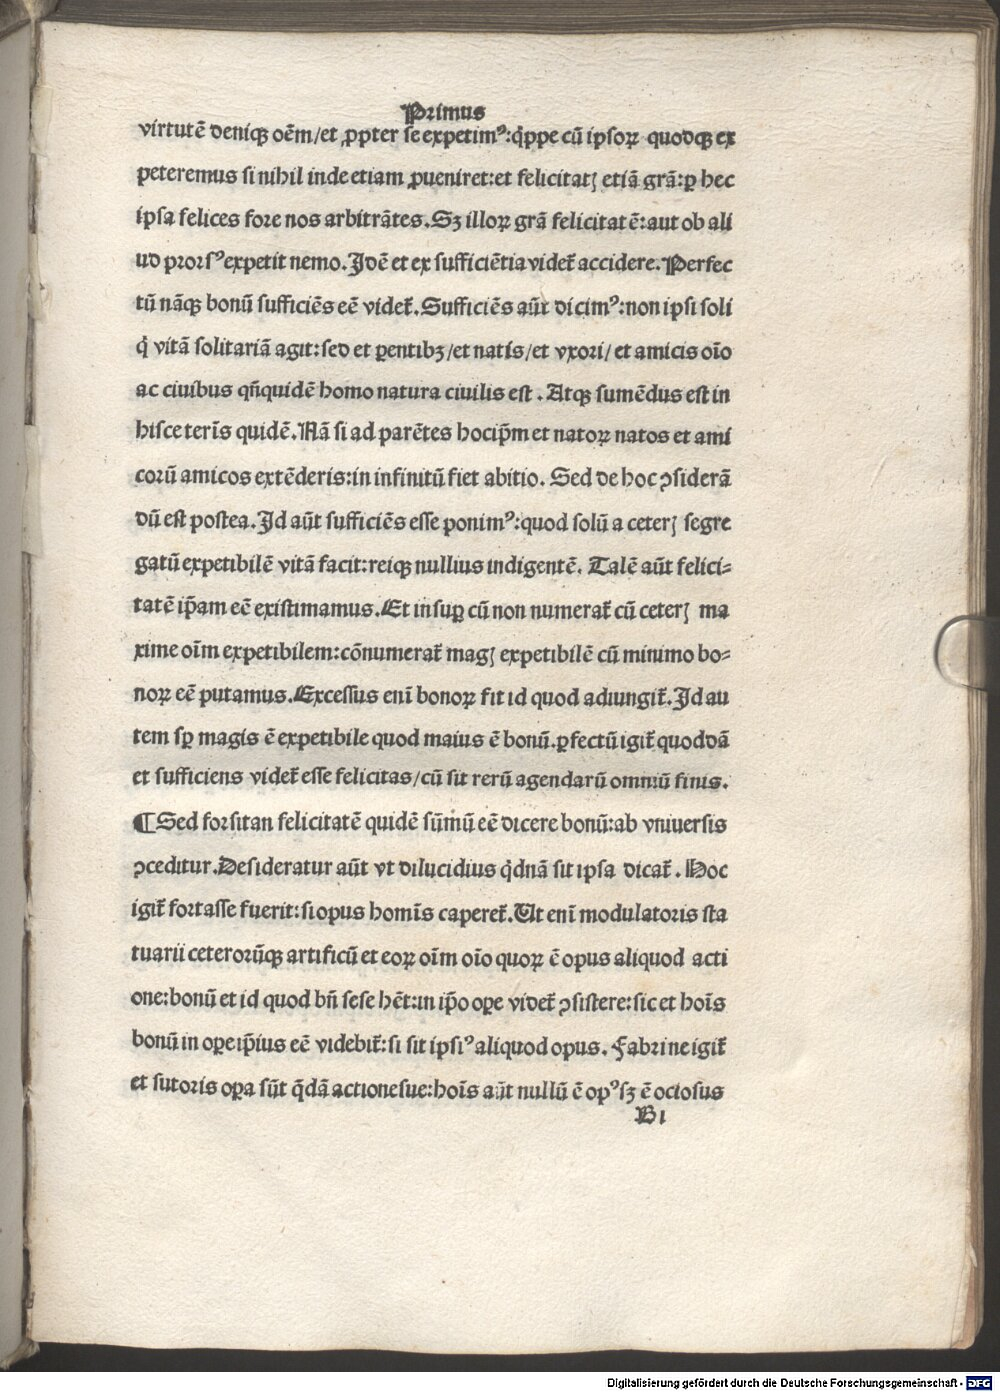 Primus
virtutē deniqꝫ oēm/et ꝓpter se expetimꝰ:q̇ppe cū ipsoꝝ quodqꝫ ex
peteremus si nihil inde etiam ꝓueniret:et felicitatꝭ etiā grā:ꝑ hec
ipsa felices fore nos arbitrātes.Sꝫ illoꝝ grā felicitatē:aut ob ali
ud prorsꝰ expetit nemo.Idē et ex sufficiētia videt̄ accidere.Perfec
tū nāqꝫ bonū sufficiēs eē videt̄.Sufficiēs aūt dicimꝰ:non ipsi soli
q̇ vitā solitariā agit:sed et ꝑentibꝫ/et natis/et vxori/et amicis oīo
ac ciuibus qn̄quidē homo natura ciuilis est.Atqꝫ sumēdus est in
hisce terīs quidē.Nā si ad parētes hocip̄m et natoꝝ natos et ami
corū amicos extēderis:in infinitū fiet abitio. Sed de hoc ꝯsiderā
dū est postea.Id aūt sufficiēs esse ponimꝰ:quod solū a ceterꝭ segre
gatū expetibilē vitā facit:reiqꝫ nullius indigentē. Talē aūt felici⸗
tatē ip̄am eē existimamus.Et insuꝑ cū non numerat̄ cū ceterꝭ ma
xime oīm expetibilem:cōnumerat̄ magꝭ expetibilē cū minimo bo⸗
noꝝ eē putamus.Excessus enī bonoꝝ fit id quod adiungit̄.Id au
tem sꝑ magis ē expetibile quod maius ē bonū.ꝑfectū igit̄ quoddā
et sufficiens videt̄ esse felicitas/cū sit rerū agendarū omniū finis.
¶Sed forsitan felicitatē quidē sūmū eē dicere bonū:ab vniuersis
ꝯceditur.Desideratur aūt vt dilucidius q̇dnā sit ipsa dicat̄. Hoc
igit̄ fortasse fuerit:si opus homīs caperet̄.Ut enī modulatoris sta
tuarii ceterorūqꝫ artificū et eoꝝ oīm oīo quoꝝ ē opus aliquod acti
one:bonū et id quod bn̄ sese hēt:in ip̄o oꝑe videt̄ ꝯsistere:sic et hoīs
bonū in oꝑe ip̄ius eē videbit̄:si sit ipsiꝰ aliquod opus. Fabri ne igit̄
et sutoris oꝑa sūt q̄dā actionesue:hoīs aūt nullū ē opꝰ sꝫ ē ociosus
B1